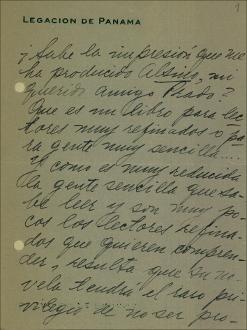 LEGACION DE PANAMA
¿Sabe la impresión que me
ha producido Alsino, mi
querido amigo Prado?
Que es un libro para lec-
tores muy refinados o pa-
ra gente muy sencilla....
Y como es muy reducida
la gente sencilla que sa-
be leer y son muy po-
cos los lectores refina-
dos que quieren compren-
der, resulta que su no-
vela tendrá el raro pri-
vilegio de no ser pro-